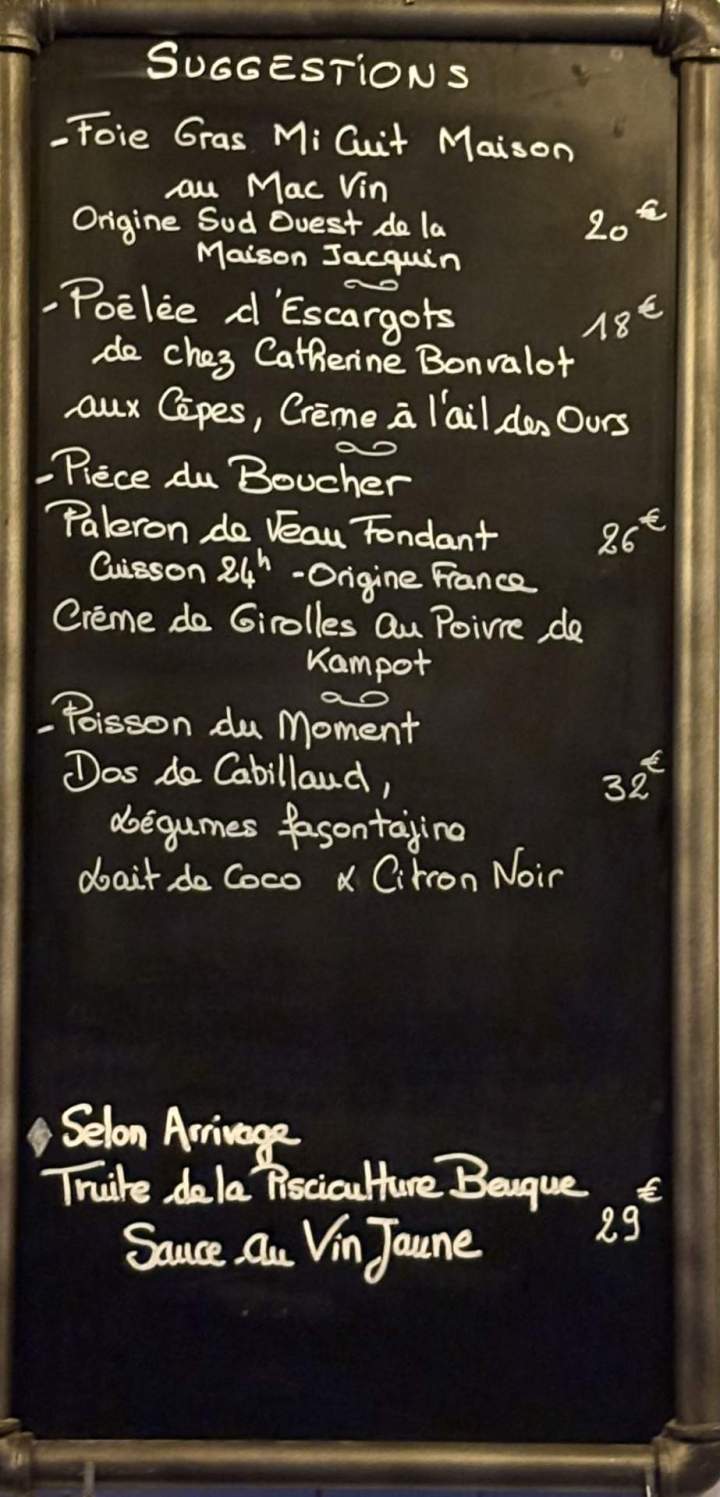 SUGGESTIONS
- Foie Gras Mi Cuit Maison
au Mac Vin
Origine Sud Ouest de la
20€
Maison Jacquin
- Poêlée d'Escargots
18€
de chez Catherine Bonvalot
aux Cêpes, Crème à l'ail des Ours
- Pièce du Boucher
Paleron de Veau Fondant
26€
Cuisson 24h - Origine France
Crème de Girolles au Poivre de
Kampot
- Poisson du Moment
Dos de Cabillaud,
32€
Légumes façon tajine
Lait de Coco & Citron Noir
Selon Arrivage
Truite de la Pisciculture Beuque
29€
Sauce au Vin Jaune